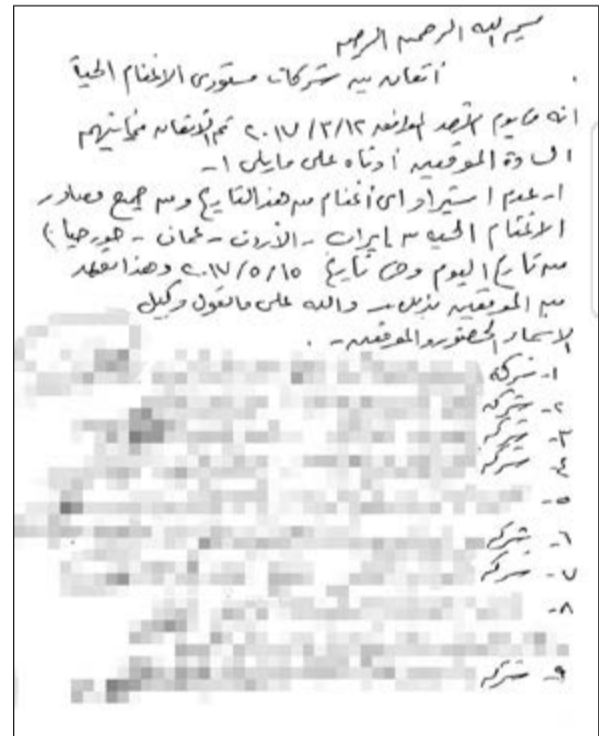 بسم الله الرحمن الرحيم
اتفاق بين شركات مستوردي الاغنام الحية
انه في يوم الأحد الموافق ٢٠١٧/٣/١٢ تم الاتفاق فيما بينهم
السادة الموقعين أدناه على مايلي :-
١- عدم استيراد اى أغنام من هذا التاريخ ومن جميع مصادر
الاغنام الحية من ايران - الأردن - عمان - جورجيا )
من تاريخ اليوم وحتى تاريخ ٢٠١٧/٥/١٥ وهذا تعهد
من الموقعين بذلك - والله على مانقول وكيل
الاسماء الحضور والموقعين - .
١- شركة
٢- شركة
٣- شركة
٤- شركة
٥-
٦- شركة
٧- شركة
٨-
٩- شركة